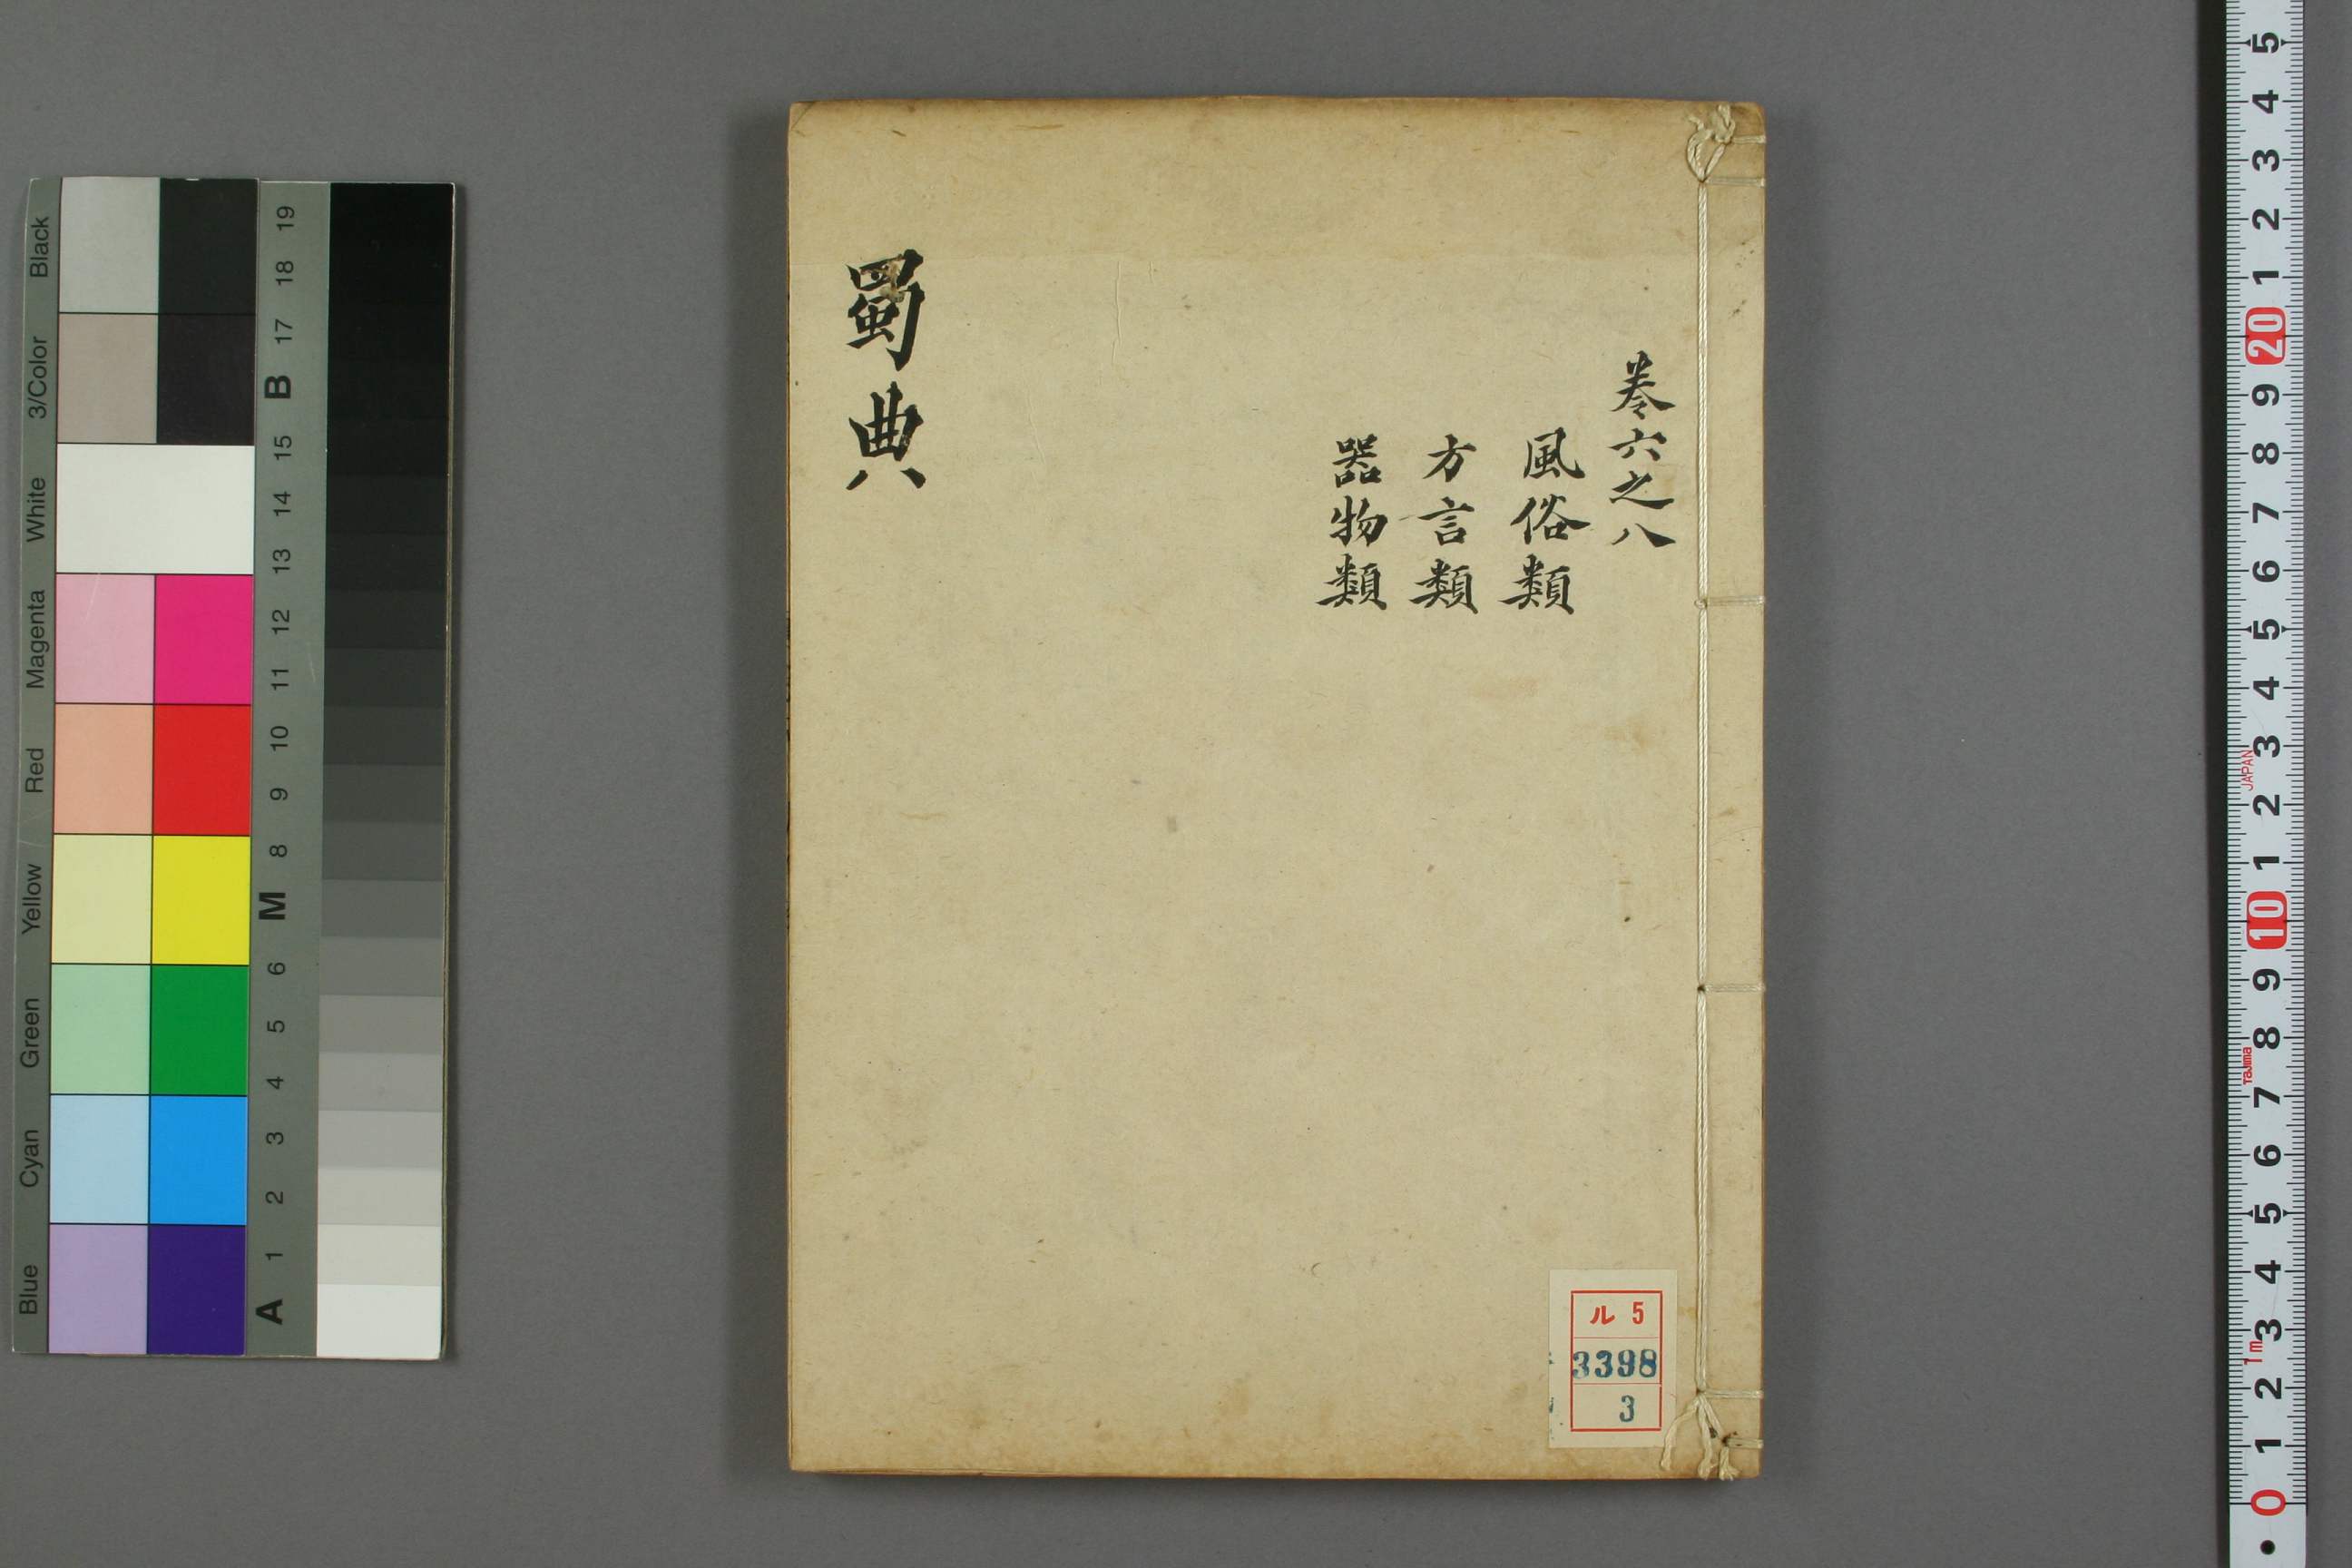 蜀典
卷六之八
風俗類
方言類
器物類
ル 5
3398
3
Black
3/Color
White
Magenta
Red
Yellow
Green
Cyan
Blue
19
18
17
B
15
14
13
12
11
10
9
8
M
6
5
4
3
2
1
A
5
4
3
2
1
20
9
8
7
6
5
4
3
JAPAN
2
1
10
9
8
Tajima
7
6
5
4
3
1m
2
1
0